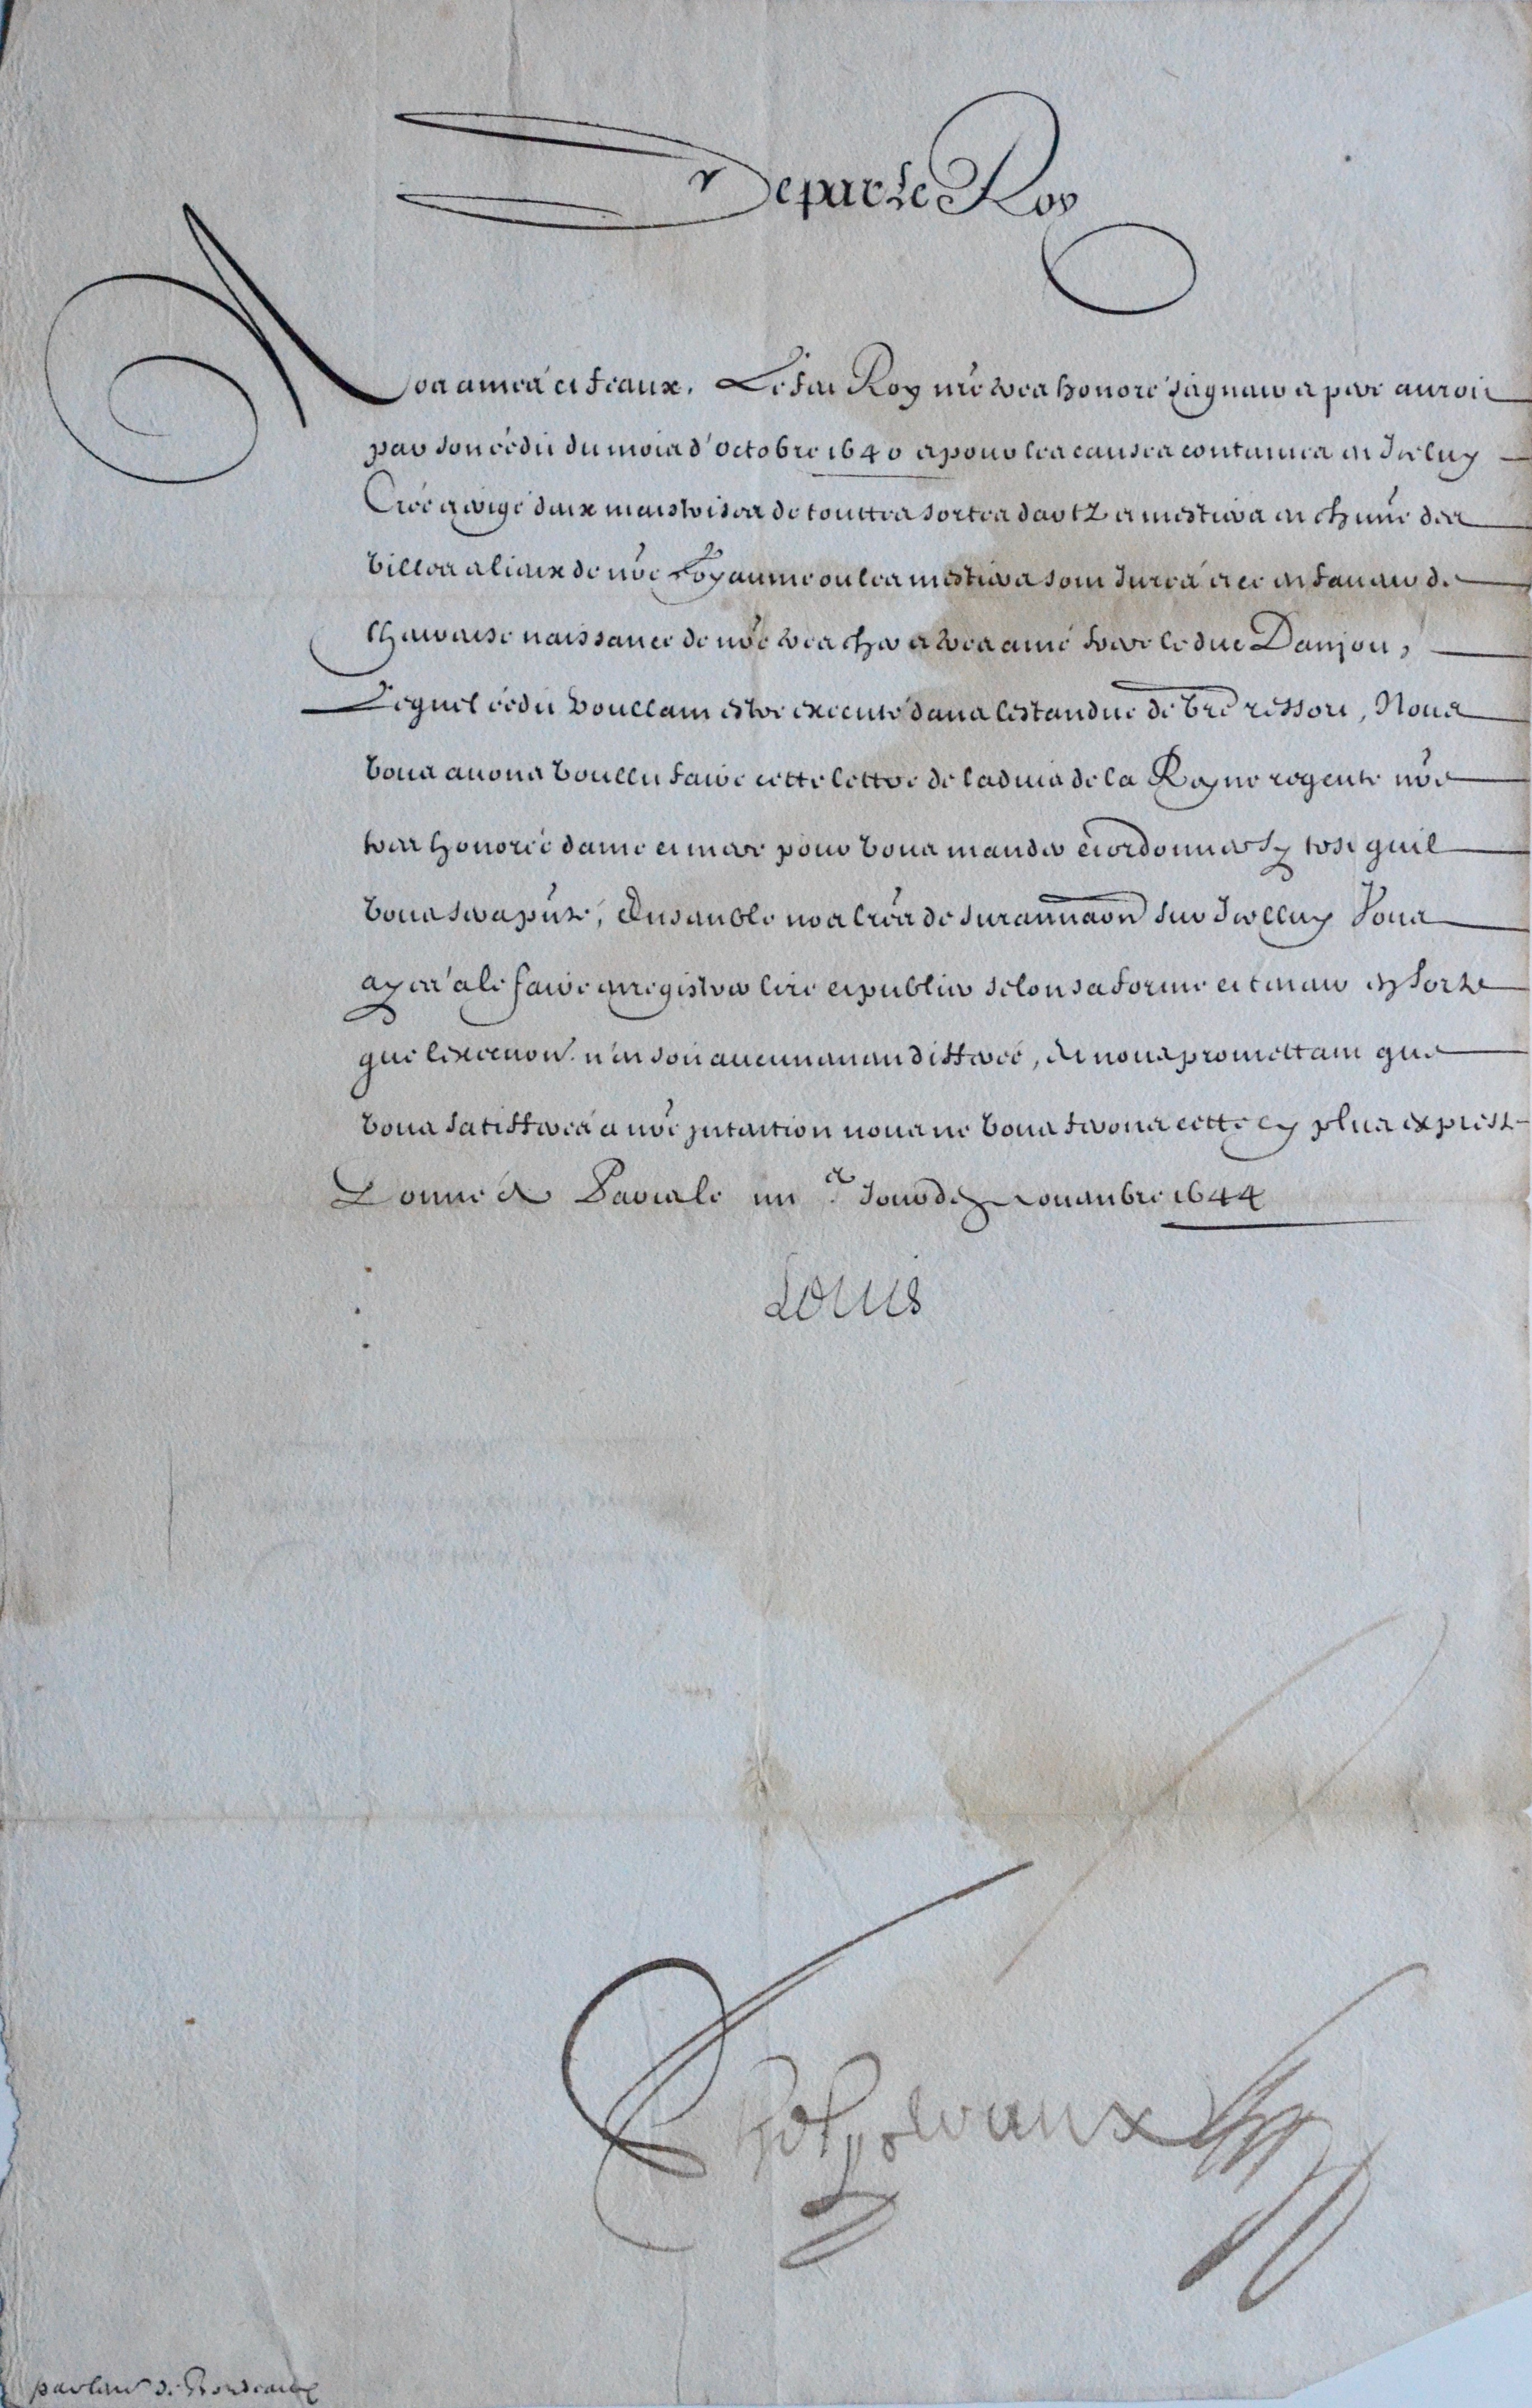 De par le Roy
Nos amez et feaux. Le feu Roy nr̃e tres honoré seigneur et pere auroit
par son eédit du mois d'octobre 1640 et pour les causes contenues en Icelluy
Créé et erigé deux maistrises de touttes sortes dartz et mestiers en chũne des
villes et lieux de nr̃e Royaume ou les mestiers sont Jurez et ce en faveur de
lheureuse naissance de nr̃e tres cher et tres amé frere le duc Danjou,
Lequel eédit voullant estre executé dans lestandue de vr̃e ressort, Nous
vous avons voullu faire cette lettre de ladvis de la Reyne regente nr̃e
tres honorée dame et mere pour vous mander et ordonner sy tost quil
vous sera pñte, Ensemble nos lrẽs de surannaõn sur Icelluy Vous
ayez a le faire enregistrer lire et publier selon sa forme et teneur en sorte
que lexecuõn n'en soit aucunement differée, Et nous promettant que
vous satisferez a nr̃e jntention nous ne vous ferons cette cy plus expresse
Donné A Paris le jour de novembre 1644
Louis
Phelypeaux
parlem.t de Bordeaux